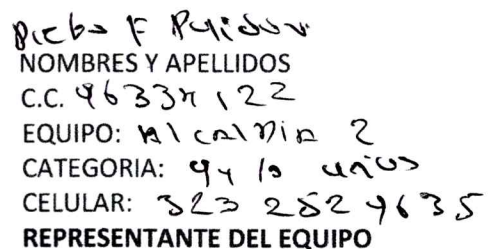 F
NOMBRES Y APELLIDOS
C.C. 96337122
EQUIPO: Alcaldia 2
CATEGORIA: 9 y 10 años
CELULAR: 323 252 9635
REPRESENTANTE DEL EQUIPO